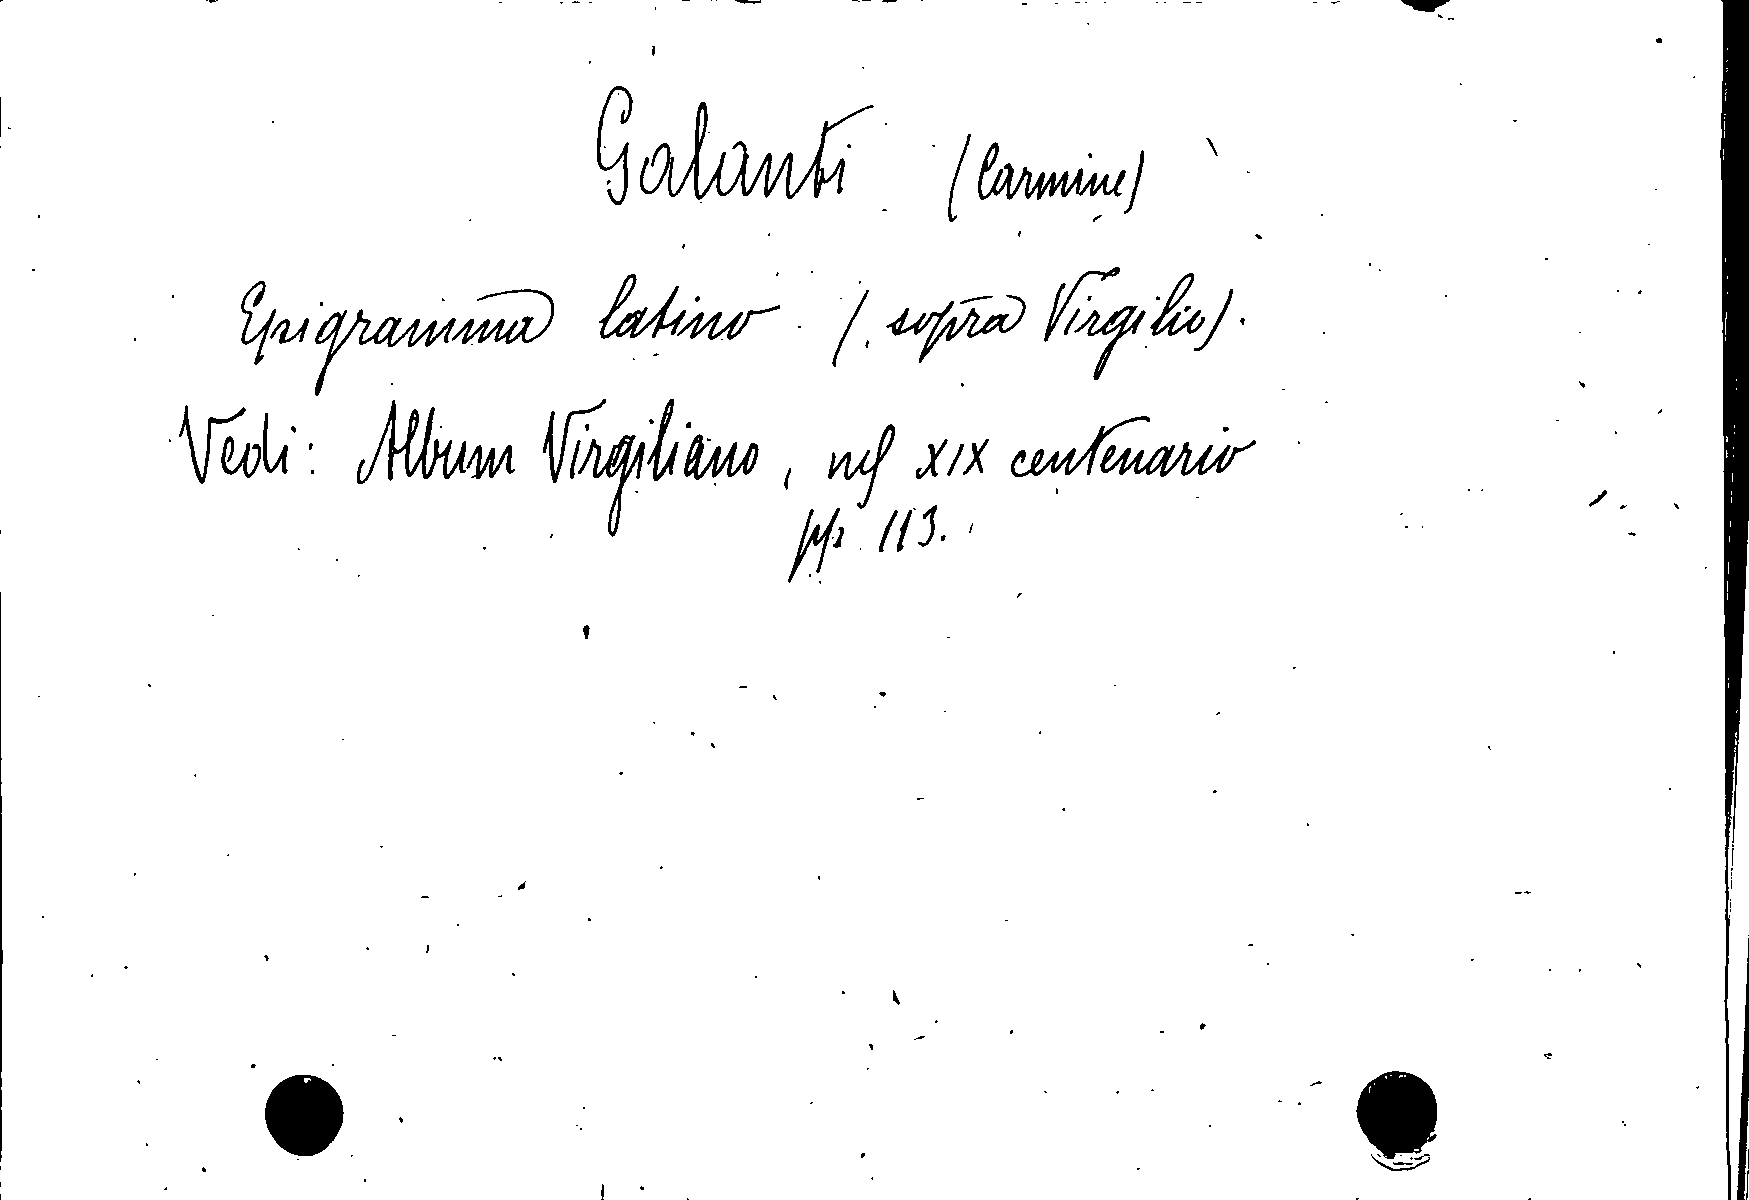 Galanti (Carmine)
Epigramma latino (sopra Virgilio).
Vedi: Album Virgiliano, nel XIX centenario
pp 113.